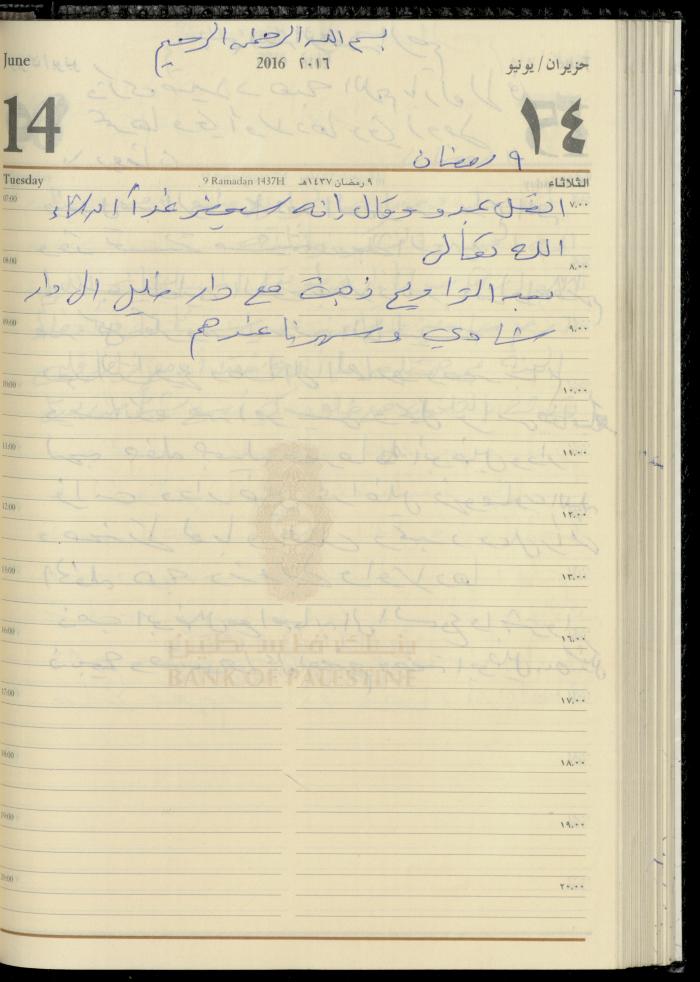 بسم الله الرحمن الرحيم
June 2016 ٢٠١٦ حزيران / يونيو
14 ١٤
٩ رمضان
Tuesday 9 Ramadan 1437H ٩ رمضان ١٤٣٧هـ الثلاثاء
07:00 اتصل عبدو وقال إنه سيحضر غداً ان شاء ٧,٠٠
الله تعالى
08:00 ٨,٠٠
بعد التراويح ذهبت مع دار خليل الى دار
09:00 شادي وسهرنا عندهم ٩,٠٠
10:00 ١٠,٠٠
11:00 ١١,٠٠
12:00 ١٢,٠٠
13:00 ١٣,٠٠
16:00 ١٦,٠٠
بنك فلسطين
BANK OF PALESTINE
17:00 ١٧,٠٠
18:00 ١٨,٠٠
19:00 ١٩,٠٠
20:00 ٢٠,٠٠